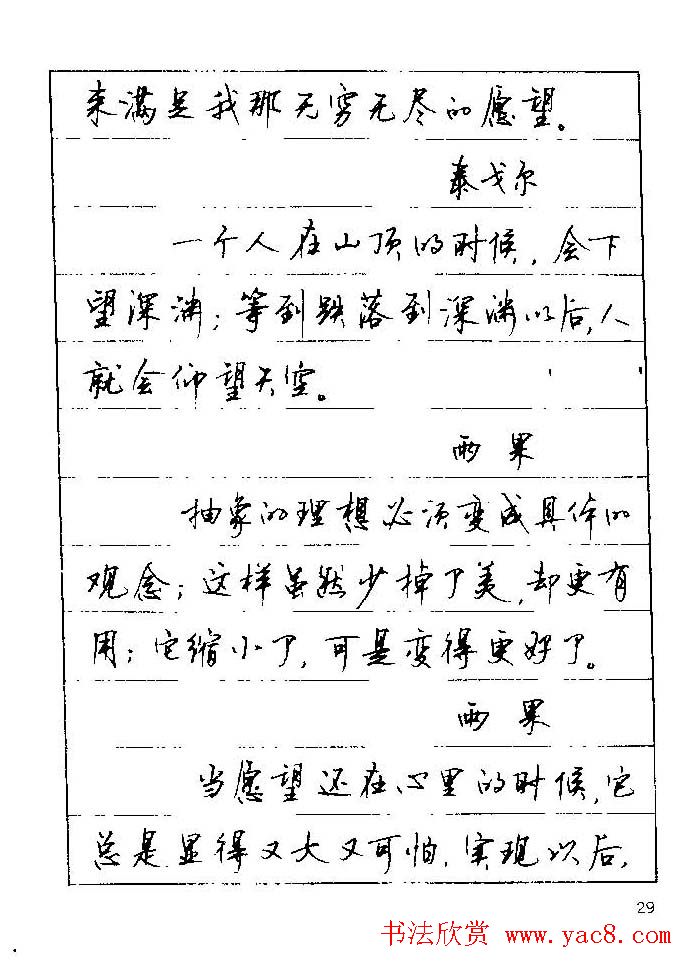 来满足我那无穷无尽的愿望。
泰戈尔
一个人在山顶的时候,会下
望深渊;等到跌落到深渊以后,人
就会仰望天空。
雨果
抽象的理想必须变成具体的
观念;这样虽然少掉了美,却更有
用;它缩小了,可是变得更好了。
雨果
当愿望还在心里的时候,它
总是显得又大又可怕,实现以后,
29
书法欣赏 www.yac8.com